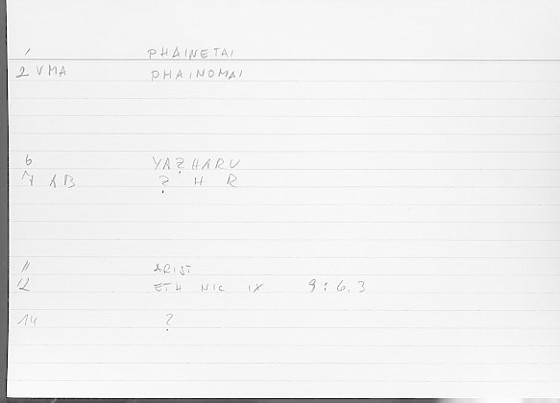 1 PHAINETAI
2 VMA PHAINOMAI
6 YAẒHARU
7 AB Ẓ H R
11 ARIST
12 ETH NIC IX 9:6.3
14 Ẓ